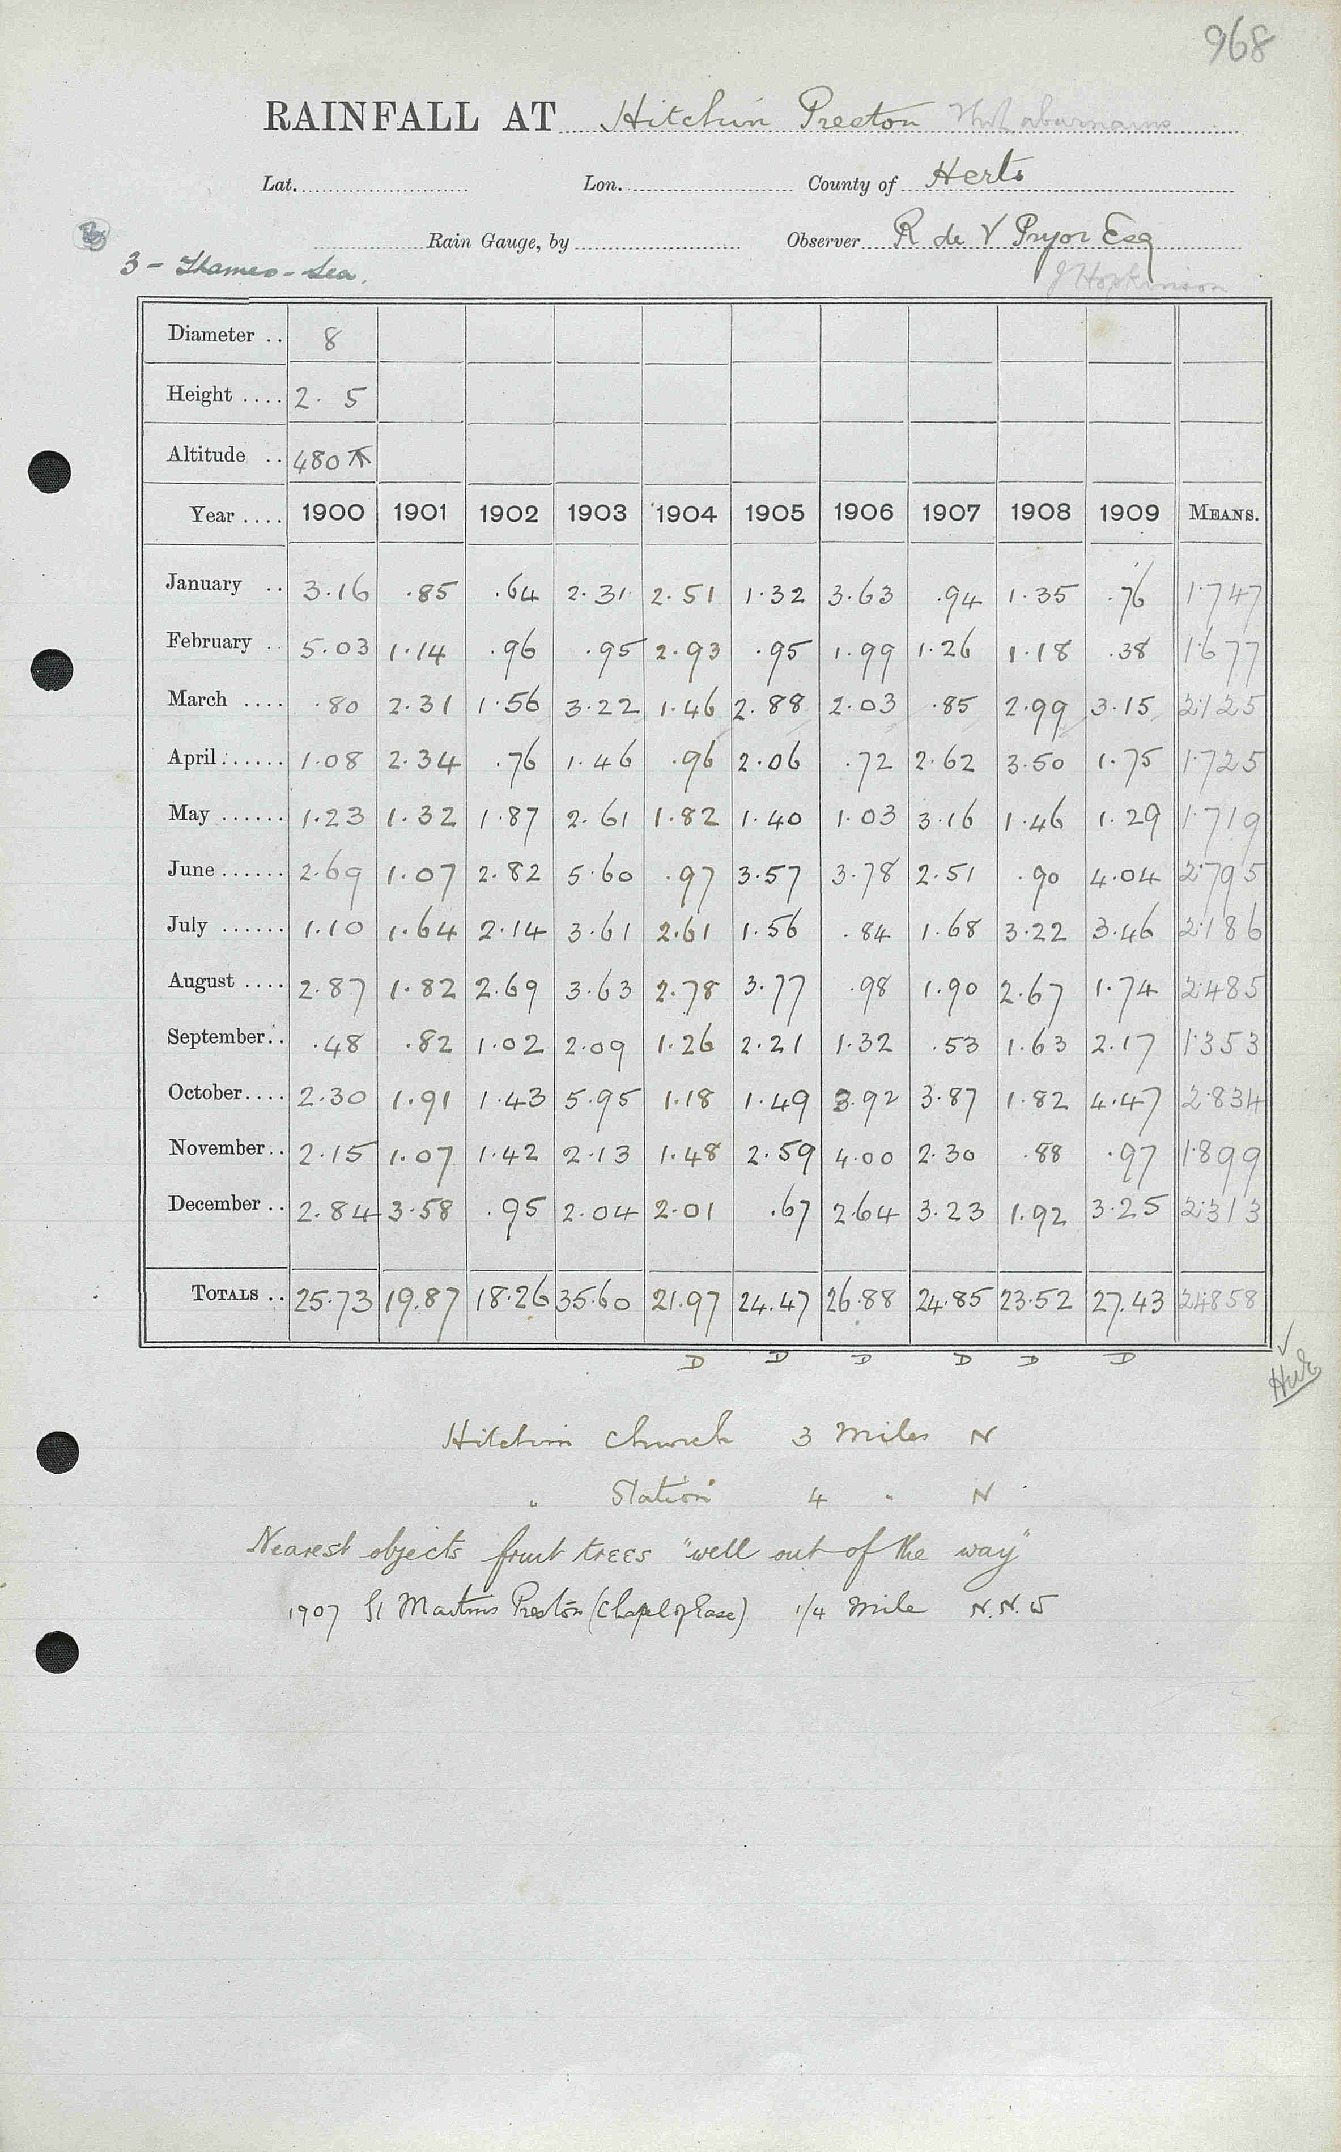 968
RAINFALL AT Hitchin Preston
Lat. Lon. County of Herts
Rain Gauge, by Observer R de V Pryor Esq
3 - Thames - Lea.
J Hopkinson
Diameter .. 8
Height .... 2. 5
Altitude .. 480
Year .... 1900 1901 1902 1903 1904 1905 1906 1907 1908 1909 MEANS.
January .. 3.16 .85 .64 2.31 2.51 1.32 3.63 .94 1.35 .76 1.747
February .. 5.03 1.14 .96 .95 2.93 .95 1.99 1.26 1.18 .38 1.677
March .... .80 2.31 1.56 3.22 1.46 2.88 2.03 .85 2.99 3.15 2.125
April ...... 1.08 2.34 .76 1.46 .96 2.06 .72 2.62 3.50 1.75 1.725
May ...... 1.23 1.32 1.87 2.61 1.82 1.40 1.03 3.16 1.46 1.29 1.719
June ...... 2.69 1.07 2.82 5.60 .97 3.57 3.78 2.51 .90 4.04 2.795
July ...... 1.10 1.64 2.14 3.61 2.61 1.56 .84 1.68 3.22 3.46 2.186
August .... 2.87 1.82 2.69 3.63 2.78 3.77 .98 1.90 2.67 1.74 2.485
September .. .48 .82 1.02 2.09 1.26 2.21 1.32 .53 1.63 2.17 1.353
October .... 2.30 1.91 1.43 5.95 1.18 1.49 3.92 3.87 1.82 4.47 2.834
November .. 2.15 1.07 1.42 2.13 1.48 2.59 4.00 2.30 .88 .97 1.899
December .. 2.84 3.58 .95 2.04 2.01 .67 2.64 3.23 1.92 3.25 2.313
TOTALS .. 25.73 19.87 18.26 35.60 21.97 24.47 26.88 24.85 23.52 27.43 24.858
D D D D D D
Hitchin Church 3 Miles N
" Station 4 " N
Nearest objects fruit trees "well out of the way"
1907 St Martins Preston (Chapel of Ease) 1/4 Mile N.N.W